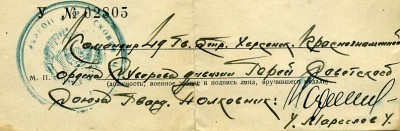 У № 02805
Командир 49 Гв. Стр. Херсонск. Краснознаменной
М. П. ордена Суворова дивизии Герой Советской
(должность, военное звание и подпись лица, вручившего медаль)
Союза Гвард. Полковник: